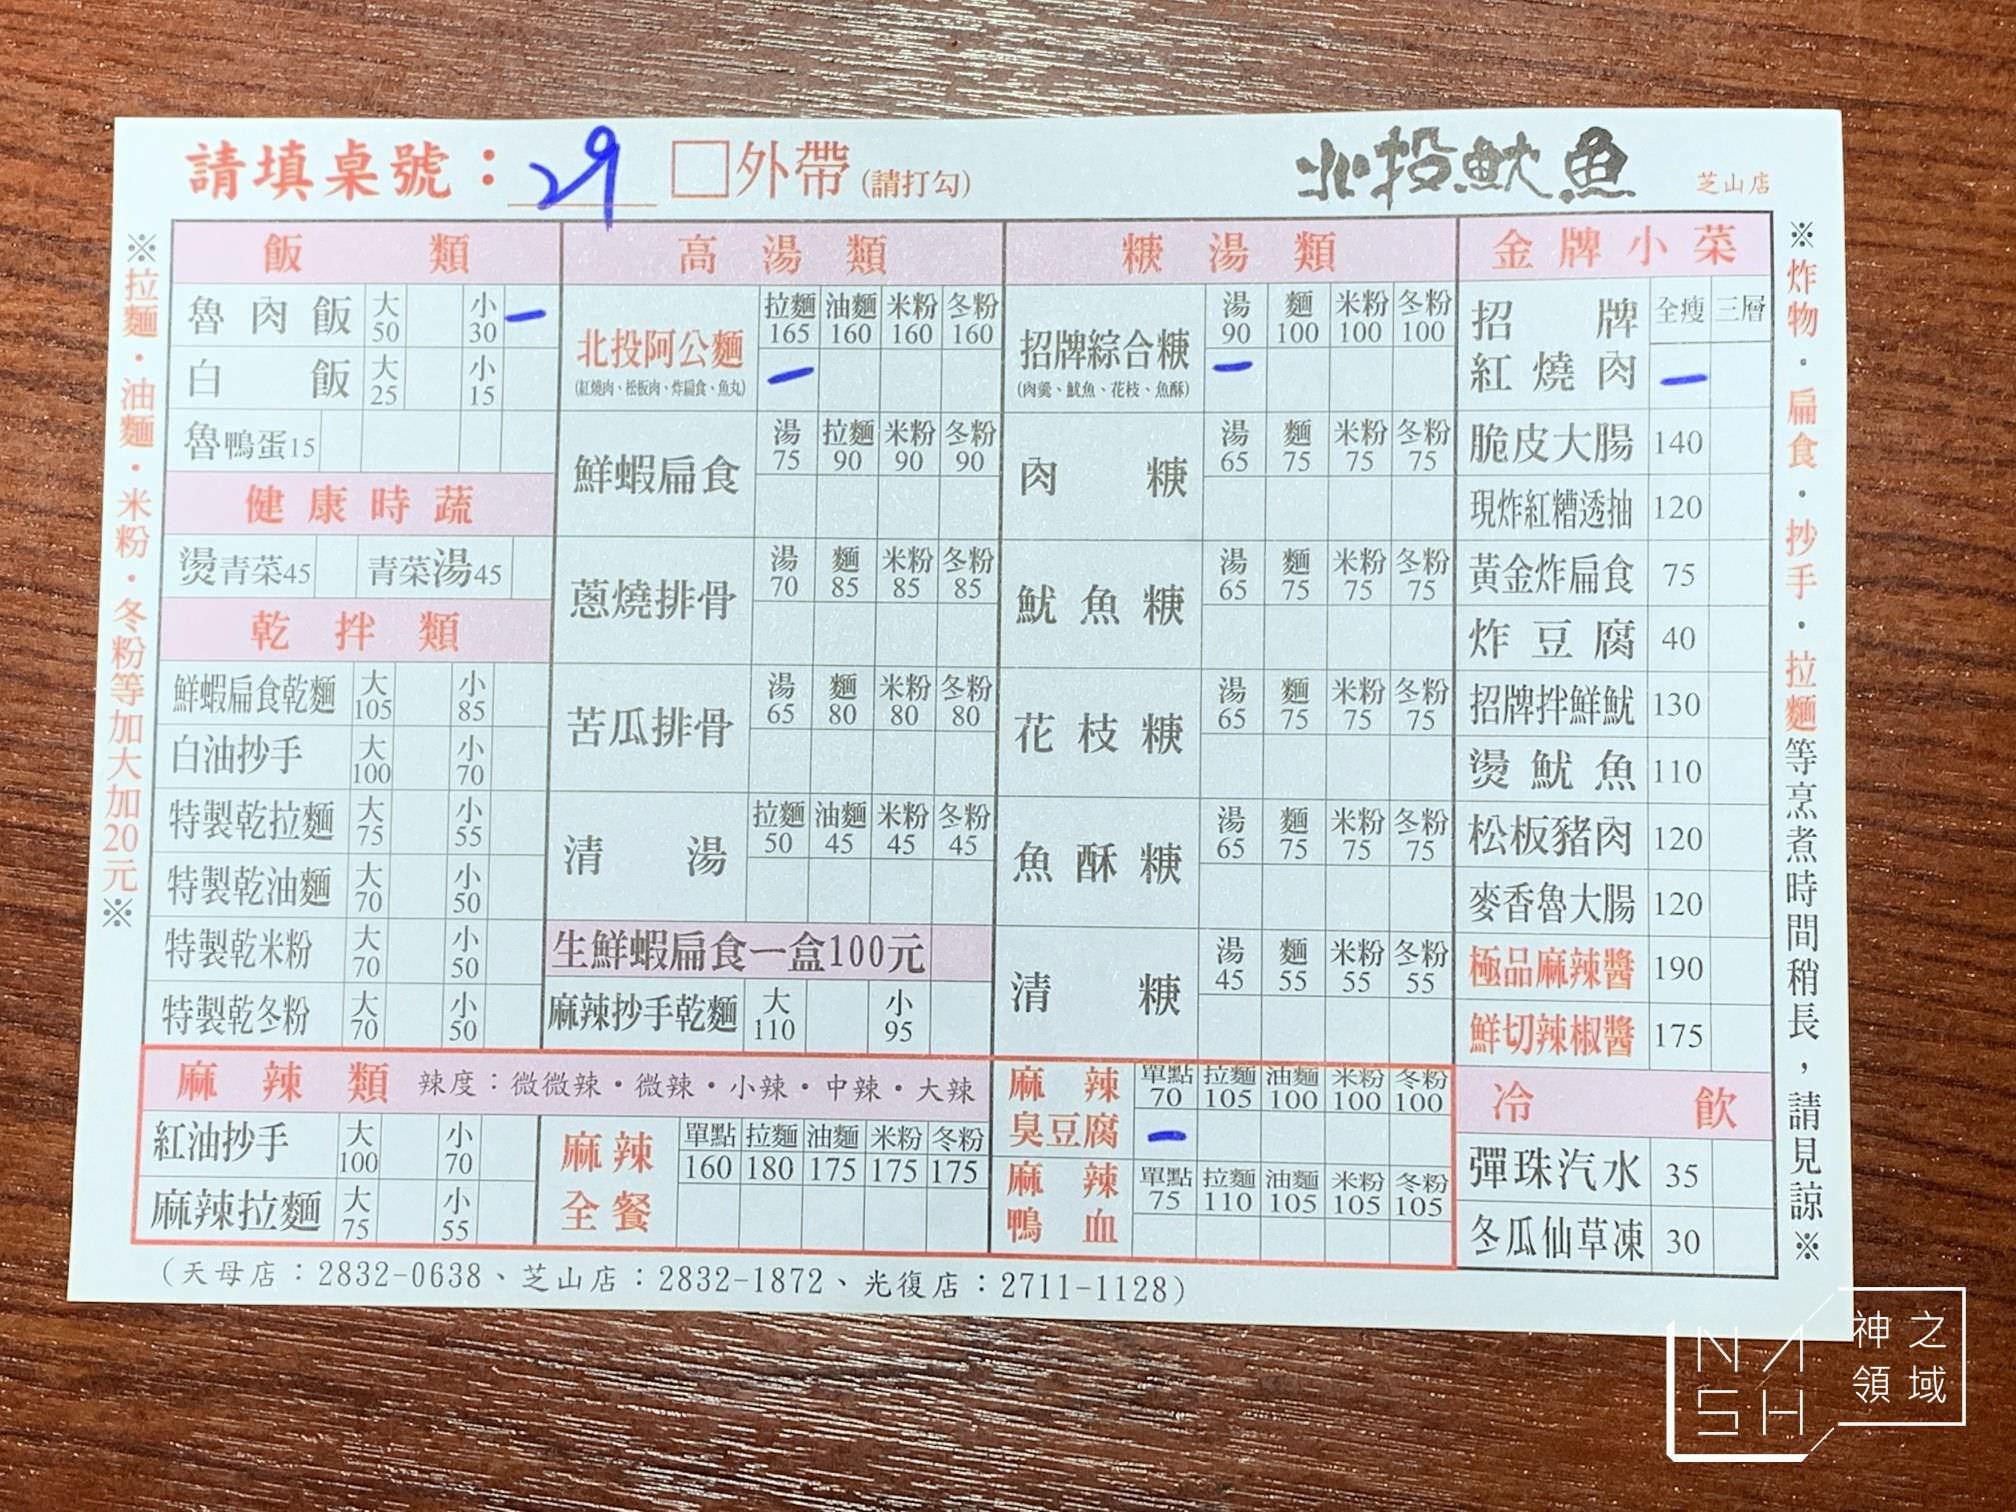 請填桌號：29 □外帶(請打勾)
北投魷魚 芝山店
※拉麵・油麵・米粉・冬粉等加大加20元※
飯類
魯肉飯 大50 小30 一
白飯 大25 小15
魯鴨蛋15
健康時蔬
燙青菜45 青菜湯45
乾拌類
鮮蝦扁食乾麵 大105 小85
白油抄手 大100 小70
特製乾拉麵 大75 小55
特製乾油麵 大70 小50
特製乾米粉 大70 小50
特製乾冬粉 大70 小50
高湯類
北投阿公麵 拉麵165 油麵160 米粉160 冬粉160
(紅燒肉、松板肉、炸扁食、魚丸) 一
鮮蝦扁食 湯75 拉麵90 米粉90 冬粉90
蔥燒排骨 湯70 麵85 米粉85 冬粉85
苦瓜排骨 湯65 麵80 米粉80 冬粉80
清湯 拉麵50 油麵45 米粉45 冬粉45
生鮮蝦扁食一盒100元
麻辣抄手乾麵 大110 小95
糖湯類
招牌綜合糖 湯90 麵100 米粉100 冬粉100
(肉羹、魷魚、花枝、魚酥) 一
肉糖 湯65 麵75 米粉75 冬粉75
魷魚糖 湯65 麵75 米粉75 冬粉75
花枝糖 湯65 麵75 米粉75 冬粉75
魚酥糖 湯65 麵75 米粉75 冬粉75
清糖 湯45 麵55 米粉55 冬粉55
金牌小菜
招牌紅燒肉 全瘦 三層
一
脆皮大腸 140
現炸紅糟透抽 120
黃金炸扁食 75
炸豆腐 40
招牌拌鮮魷 130
燙魷魚 110
松板豬肉 120
麥香魯大腸 120
極品麻辣醬 190
鮮切辣椒醬 175
冷飲
彈珠汽水 35
冬瓜仙草凍 30
麻辣類 辣度：微微辣・微辣・小辣・中辣・大辣
紅油抄手 大100 小70
麻辣拉麵 大75 小55
麻辣全餐 單點160 拉麵180 油麵175 米粉175 冬粉175
麻辣臭豆腐 單點70 拉麵105 油麵100 米粉100 冬粉100
一
麻辣鴨血 單點75 拉麵110 油麵105 米粉105 冬粉105
※炸物・扁食・抄手・拉麵等烹煮時間稍長，請見諒※
(天母店：2832-0638、芝山店：2832-1872、光復店：2711-1128)
NASH 神之領域